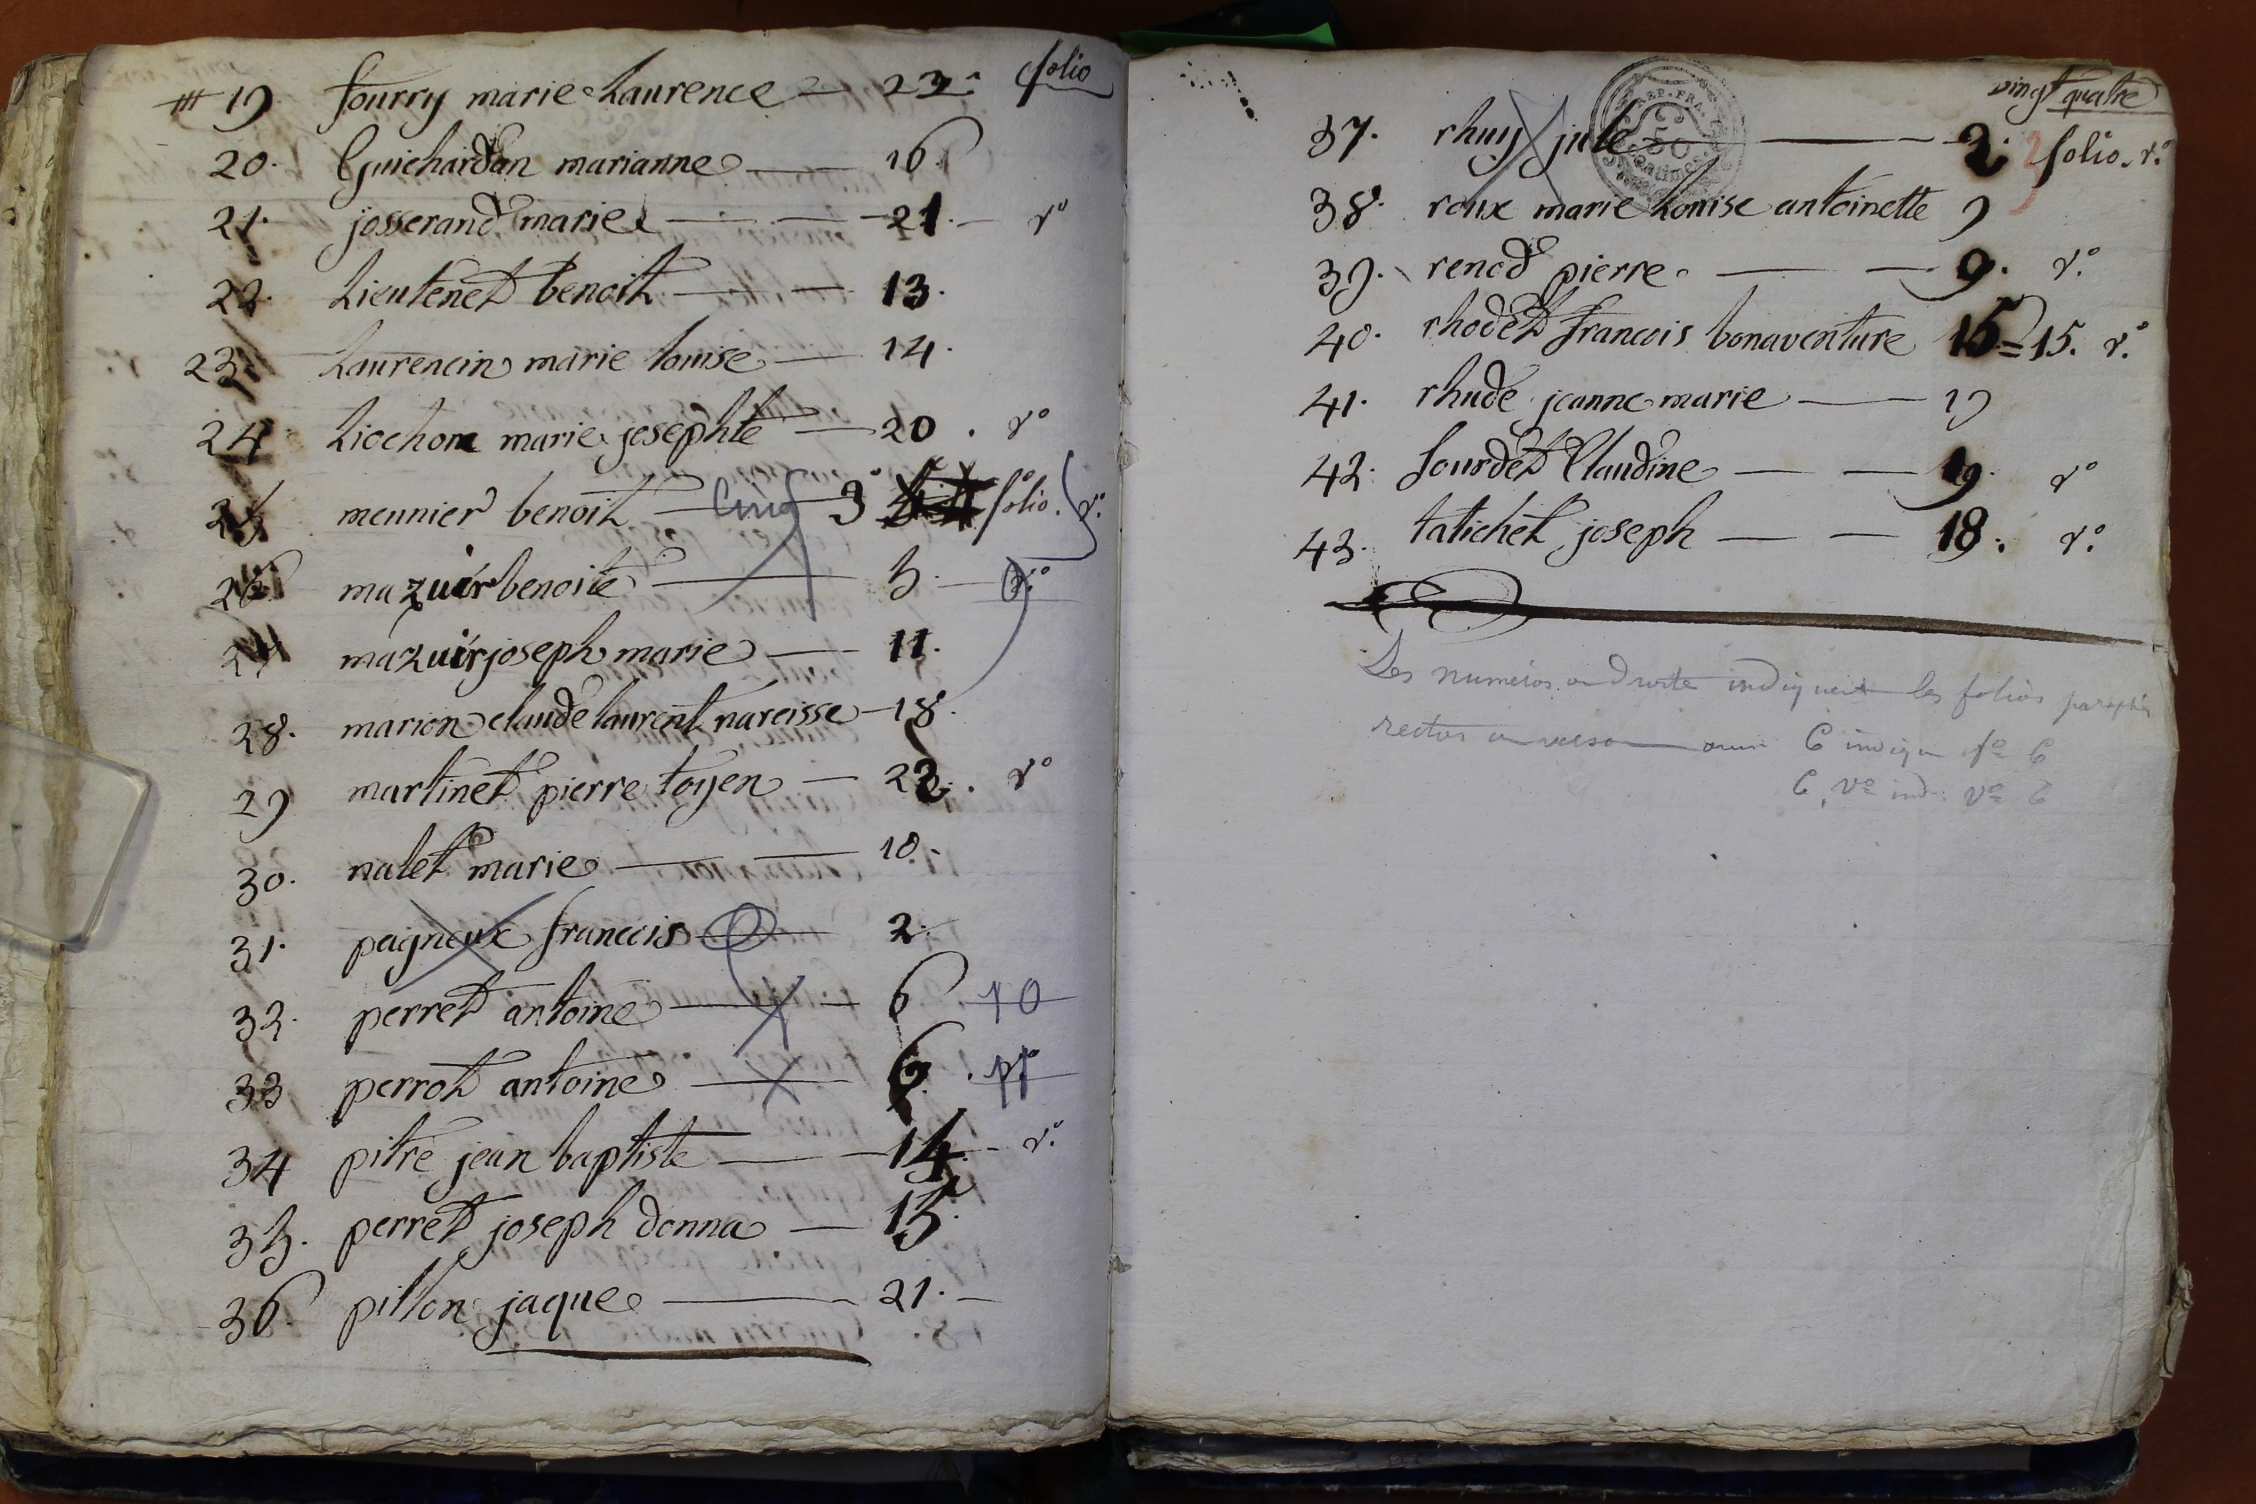 19 fourry marie Laurence — 22. folio
20. Guichardan marianne — 16
21. josserand marie — 21. — v°
22. Lieutenet benoit — 13.
23. Laurencin marie louise — 14.
24 Liochon marie josephte — 20. v°
25 meunier benoit — cinq 3 folio. v°
26 mazuir benoite — 5. — v°
27 mazuir joseph marie — 11.
28. marion claude laurent narcisse — 18.
29 martinet pierre toyen — 22. v°
30. nalet marie — 10.
31. pagneux francois — 2.
32. perret antoine — 6
33 perrot antoine — 6.
34 pitre jean baptiste — 14. — v°
35. perret joseph donna — 15.
36. pillon jaque — 21. —
vingt quatre
37. rhuy jule — 2. folio. v°
38. roux marie Louise antoinette 9
39. renod pierre — 9. v°
40. rhodet francois bonaventure 15 = 15. v°
41. rhude jeanne marie — 19
42. sourdet Claudine — 19. v°
43. tatichet joseph — 18. v°
Les numeros a droite indiquent les folios paraphés
rectos ou verso 6 indique f° 6
6, v° ind. v° 6
REP. FRA.
50